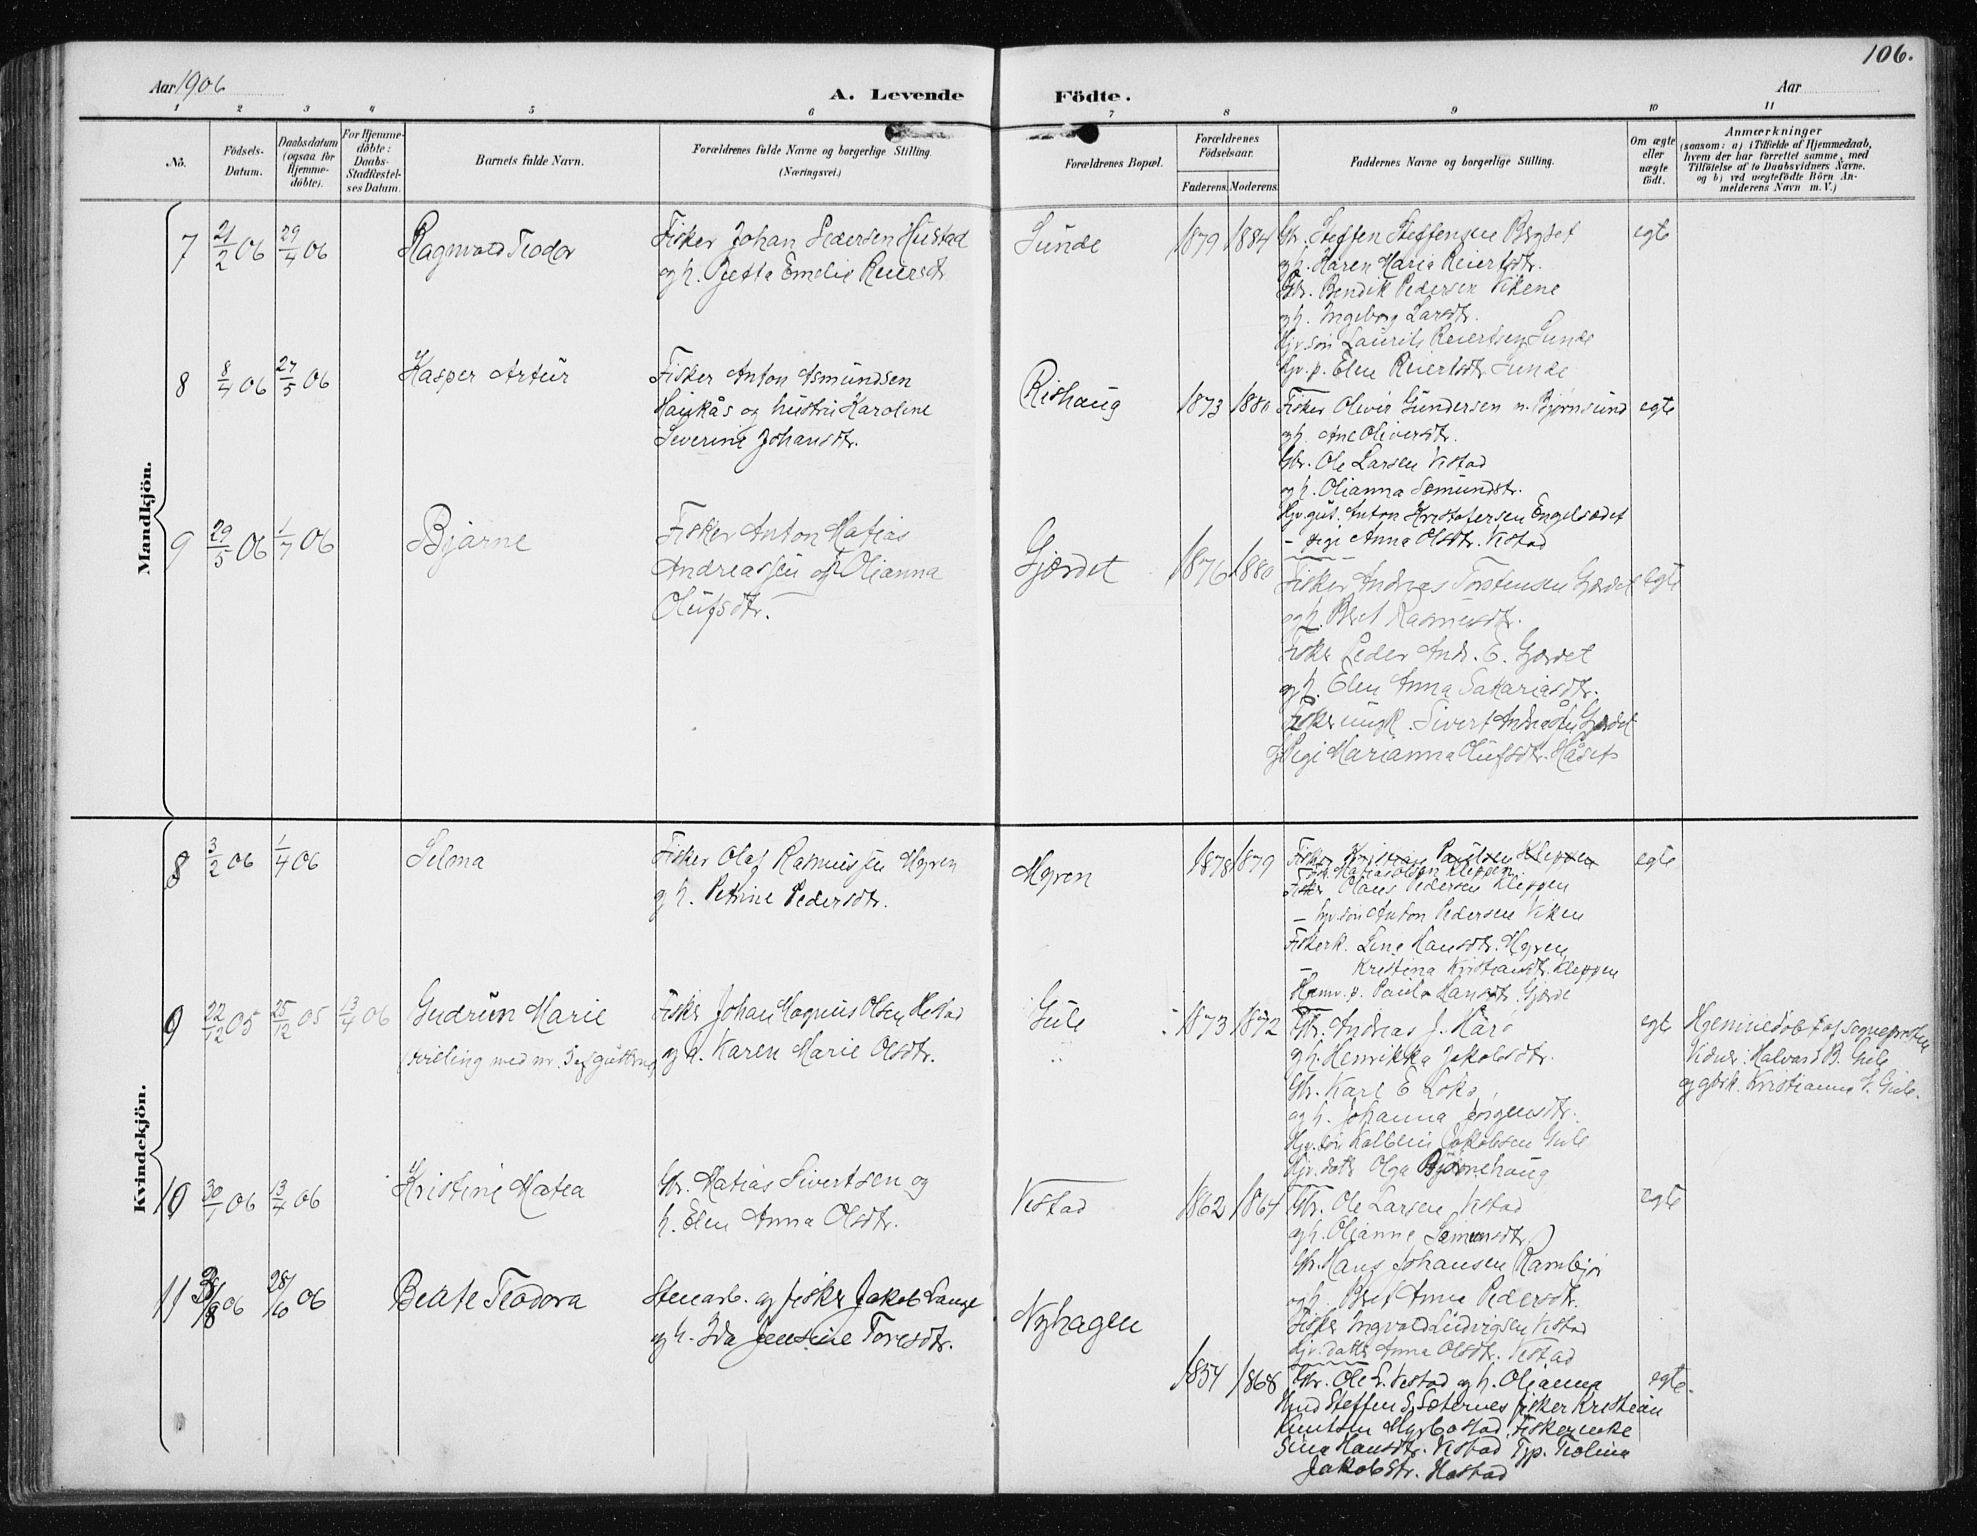 106.
Aar 1906
A. Levende Födte.
Aar
1 2 3 4 5 6 7 8 9 10 11
No.
Födsels-Datum.
Daabsdatum (ogsaa for Hjemme-döbte).
For Hjemme-döbte: Daabs-Stadfæstel-ses Datum.
Barnets fulde Navn.
Forældrenes fulde Navne og borgerlige Stilling. (Næringsvei.)
Forældrenes Bopæl.
Forældrenes Födselsaar.
Faderens. Moderens.
Faddernes Navne og borgerlige Stilling.
Om ægte eller uægte født.
Anmærkninger
(saasom: a) i Tilfælde af Hjemmedaab, hvem der har forrettet samme, med Tilföielse af to Daabsvidners Navne, og b) ved uægtefödte Börn An-melderens Navn m. V.)
Mandkjön.
7 21/2 06 29/4 06 Ragnvald Teodor
Fisker Johan Pedersen Hustad
og h. Petta Emelie Reiersdtr
Sunde 1879 1884
Gbr. Steffen Steffensen Brydet egte
og h. Karen Maria Reiertsdtr.
Gbr. Bendik Pedersen Vikene
og h. Ingeborg Larsdtr.
Gjv. søn Laurits Reiertsen Sunde
Gjv. p. Elen Reiertsdtr Sunde
8 8/4 06 27/5 06 Kasper Artur
Fisker Anton Asmundsen
Haukås og hustru Karoline
Severine Johansdtr.
Rishaug 1873 1880
Fisker Oliver Gundersen n. Bjørnsund egte
og h. Ane Oliversdtr.
Gbr. Ole Larsen Vestad
og h. Olianna Semundstr.
Hjv. gut. Anton Kristofersen Engelsædet
- pige Anna Olsdtr. Vestad
9 29/5 06 1/7 06 Bjarne
Fisker Anton Matias
Andreassen og h. Olianna
Olufsdtr.
Gjerdet 1876 1880
Fisker Andreas Torstensen Gjerdet egte
og h. Beret Rasmusdtr.
Fisker Peder Andr. E. Gjerdet
og h. Elen Anna Sakariasdtr.
Fisker ungk. Sivert Andreassen Gjerdet
og Pige Marianna Olufsdtr. Håseth
Kvindekjön.
8 3/2 06 1/4 06 Selma
Fisker Olaf Rasmussen Myren
og h. Petrine Pedersdtr.
Myren 1878 1879
Fisker Kristian Paulsen Kleppen egte
Fisk. Matias Olsen Kleppen
Fisker Olaus Pedersen Kleppen
- hjv. søn Anton Pedersen Viken
Fiskerk. Lina Hansdtr. Myren
- Kristina Kristiansdtr. Kleppen
Hjemv. p. Paula Hansdtr. Gjerde
9 22/12 05 25/12 05 13/4 06 Gudrun Marie
(tvilling med nr. 5 af guttene)
Fisker Johan Magnus Olsen Hestad
og h. Karen Marie Olsdtr.
Gule 1873 1872
Gbr. Andreas J. Harø egte
og h. Henrikka Jakobsdtr.
Gbr. Karl E Loke
og h. Johanna Jørgensdtr.
Hjv. søn Kolbein Jakobsen Gule
Hjv. datt. Olga Bjørnehaug
Hjemmedøbt af sognepræsten
Vidner: Halvard B. Gule
og gbrk. Kristianna V. Gule.
10 30/1 06 13/4 06 Kristine Matea
Gbr. Matias Sivertsen og
h. Elen Anna Olsdtr.
Vestad 1862 1864
Gbr. Ole Larsen Vestad egte
og h. Olianne Semunsdtr
Gbr. Hans Johansen Rambjør
og h. Brit Anna Pedersdtr.
Fisker Ingvald Ludvigsen Vestad
Hjv. datt. Anna Olsdtr. Vestad
11 /8 06 28/10 06 Beate Teodora
Stenarb. og fisker Jakob Lange
og h. Ida Jensine Toresdtr.
Nyhagen 1854 1868
Gbr. Ole L. Vestad og h. Olianna egte.
Steffen S. Sæternes fisker Kristian
Knutsen Myrbostad, Fiskerenke
Sina Hansdtr. Vestad Tjp. Teolina
Jakobstr. Hostad